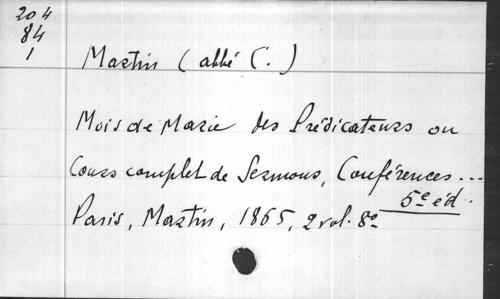 204
84
1
Martin (abbé C.)
Mois de Marie des Prédicateurs ou
Cours complet de Sermons, Conférences...
5e éd.
Paris, Martin, 1865, 2 vol. 8o